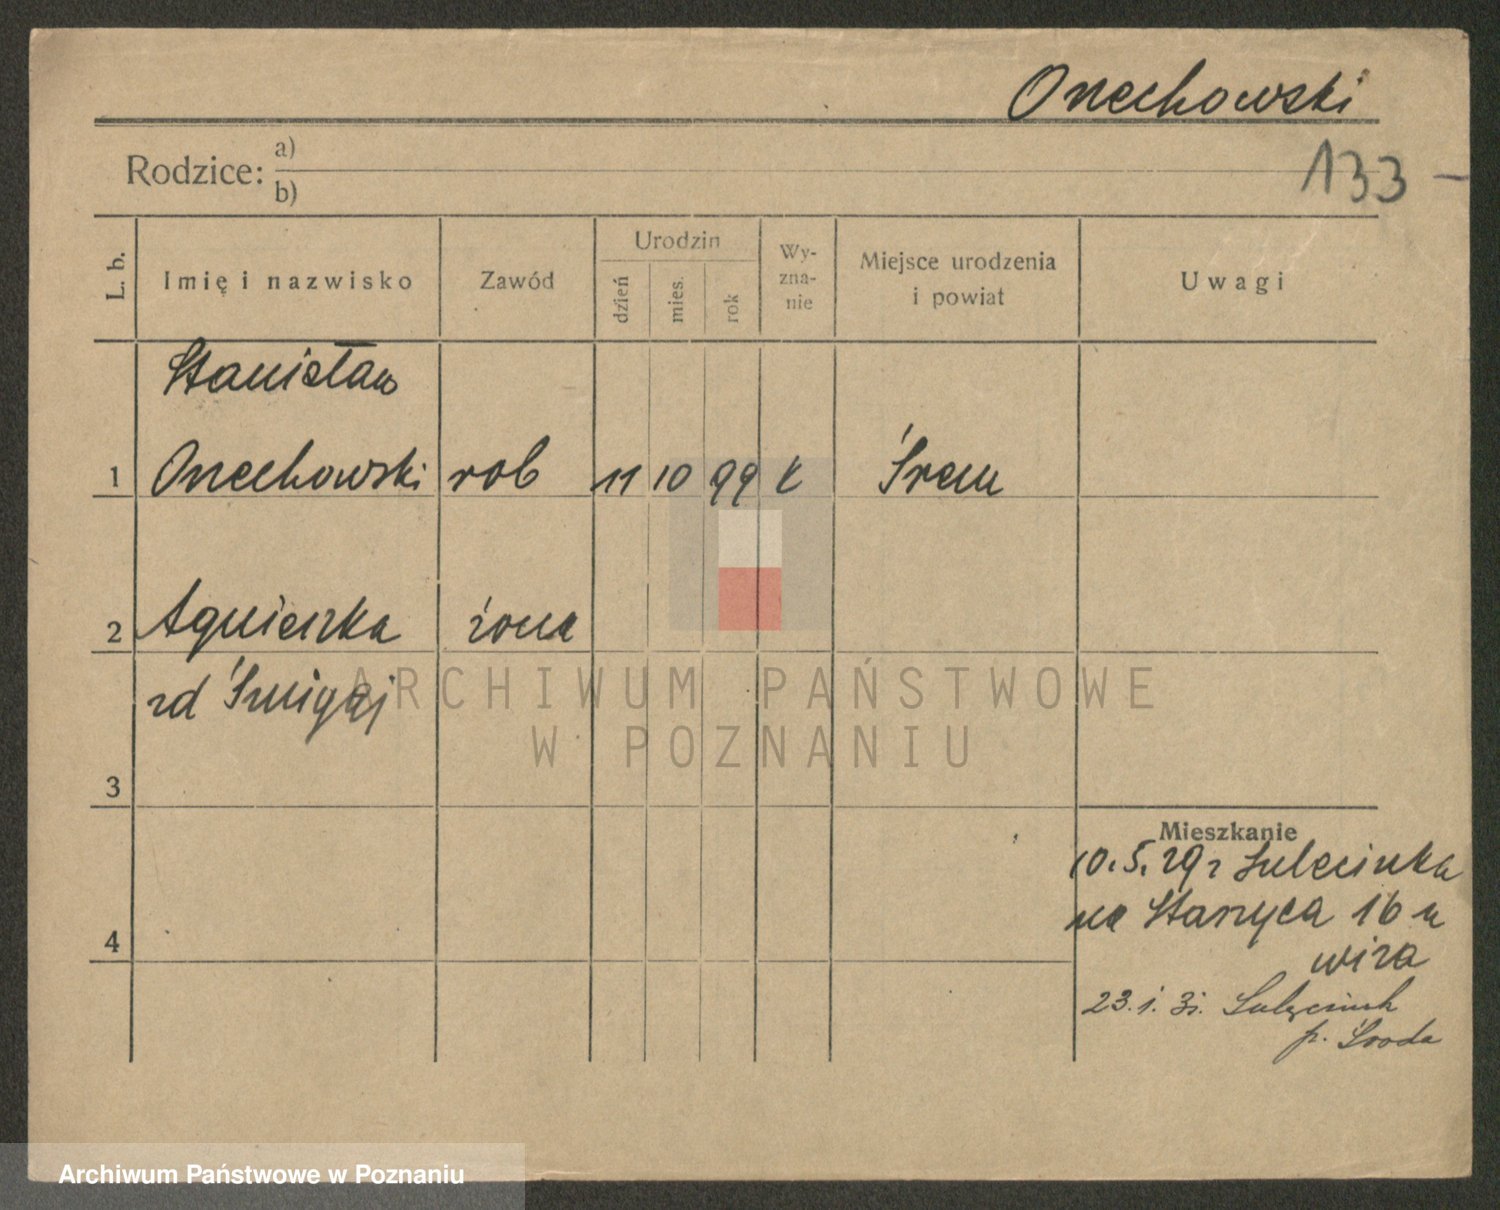 Orzechowski
133 -
Rodzice: a)
b)
L. b.
Imię i nazwisko
Zawód
Urodzin
dzień
mies.
rok
Wy-
zna-
nie
Miejsce urodzenia
i powiat
Uwagi
Stanisław
1 Orzechowski rob 11 10 99 k Śrem
2 Agnieszka żona
zd Śmigaj
ARCHIWUM PAŃSTWOWE
W POZNANIU
3
Mieszkanie
10.5.29 z Sulęcinka
na Staszyca 16 u
4
23.1.31. Sulęcinek
p. Środa
Archiwum Państwowe w Poznaniu